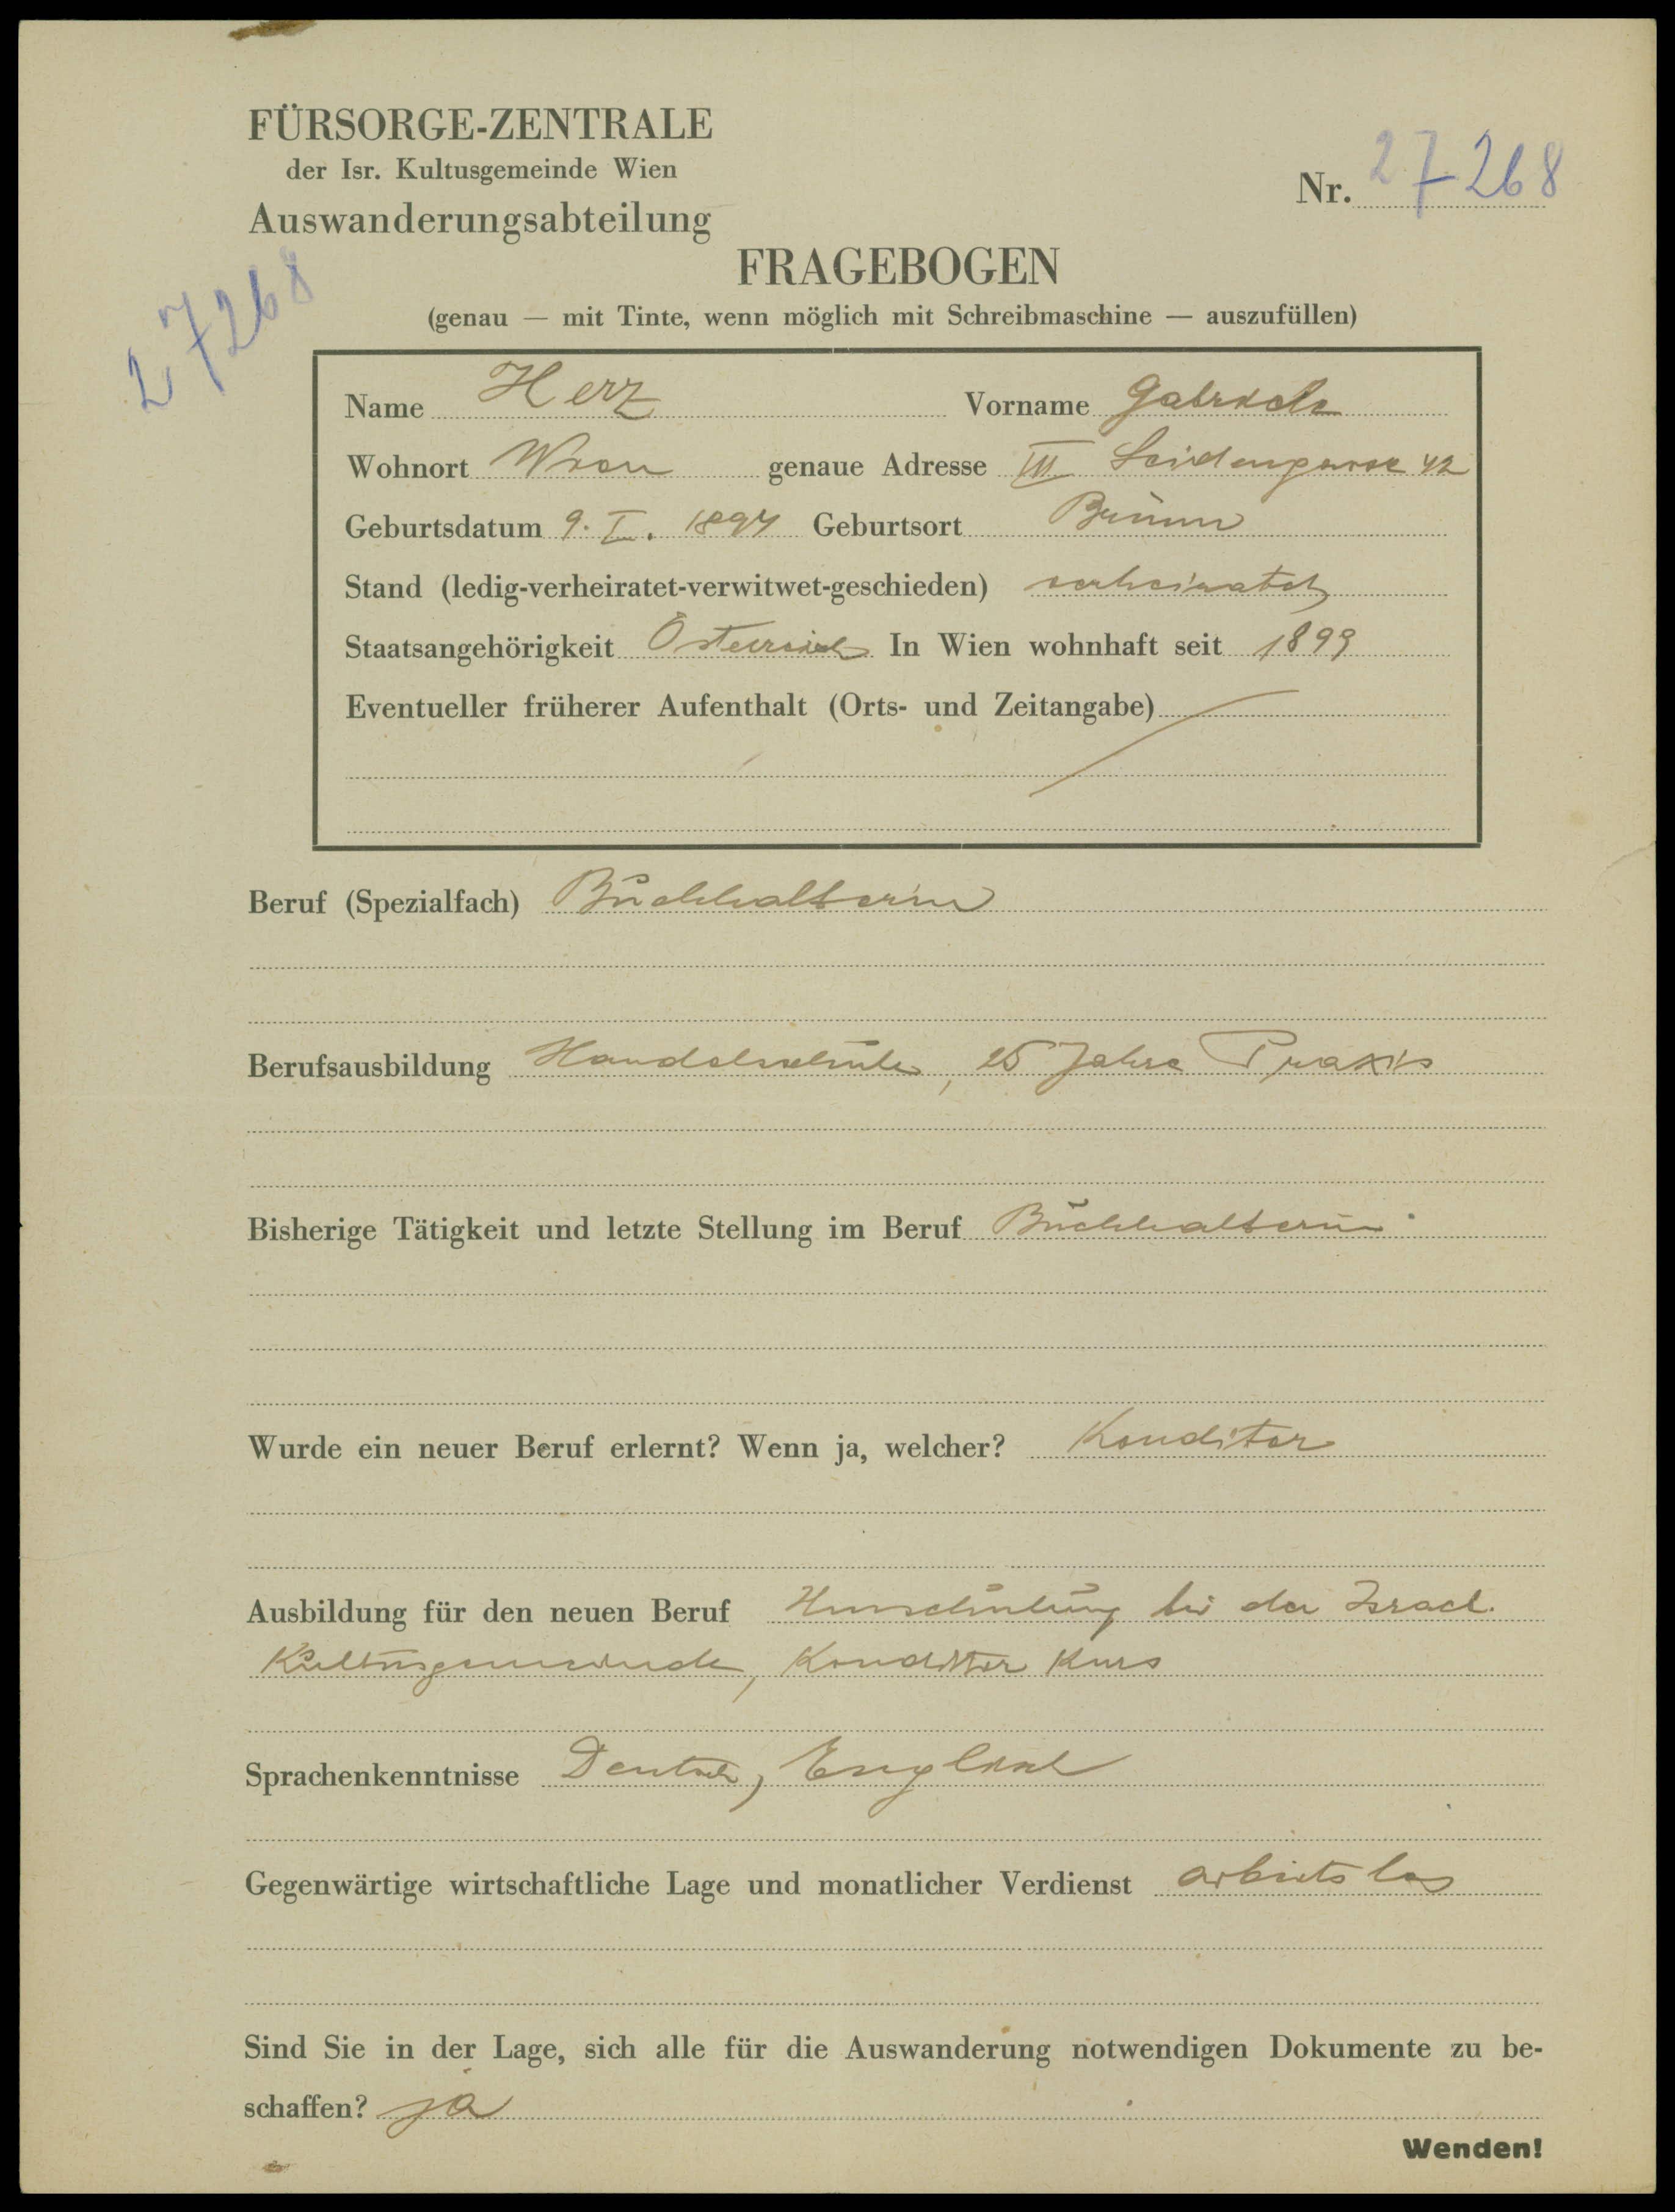 FÜRSORGE-ZENTRALE
der Isr. Kultusgemeinde Wien
Auswanderungsabteilung
Nr. 27268
27268
FRAGEBOGEN
(genau — mit Tinte, wenn möglich mit Schreibmaschine — auszufüllen)
Name Herz Vorname Gabriele
Wohnort Wien genaue Adresse Seidengasse 42
Geburtsdatum 9. I. 1897 Geburtsort Brünn
Stand (ledig-verheiratet-verwitwet-geschieden) verheiratet
Staatsangehörigkeit Österreich In Wien wohnhaft seit 1899
Eventueller früherer Aufenthalt (Orts- und Zeitangabe)
Beruf (Spezialfach) Buchhalterin
Berufsausbildung Handelsschule, 25 Jahre Praxis
Bisherige Tätigkeit und letzte Stellung im Beruf Buchhalterin
Wurde ein neuer Beruf erlernt? Wenn ja, welcher? Konditor
Ausbildung für den neuen Beruf Umschulung bei der Israel.
Kultusgemeinde, Konditor Kurs
Sprachenkenntnisse Deutsch, Englisch
Gegenwärtige wirtschaftliche Lage und monatlicher Verdienst arbeitslos
Sind Sie in der Lage, sich alle für die Auswanderung notwendigen Dokumente zu be-
schaffen? ja
Wenden!